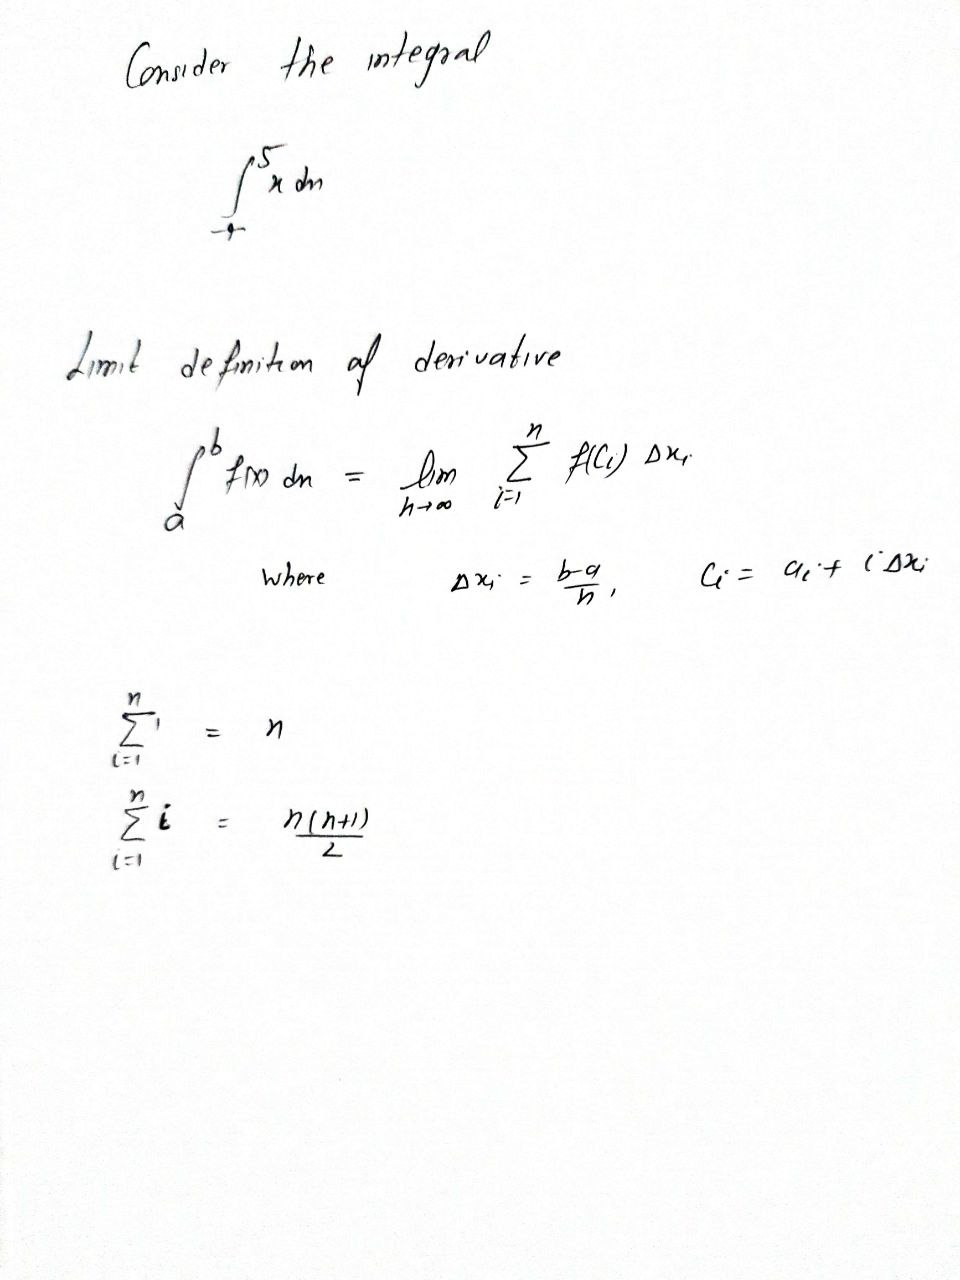 Consider the integral
∫_{-4}^{5} x dx
Limit definition of derivative
∫_{a}^{b} f(x) dx = lim_{n→∞} ∑_{i=1}^{n} f(Ci) Δxi
where Δxi = (b-a)/n, Ci = ai + iΔxi
∑_{i=1}^{n} 1 = n
∑_{i=1}^{n} i = n(n+1)/2